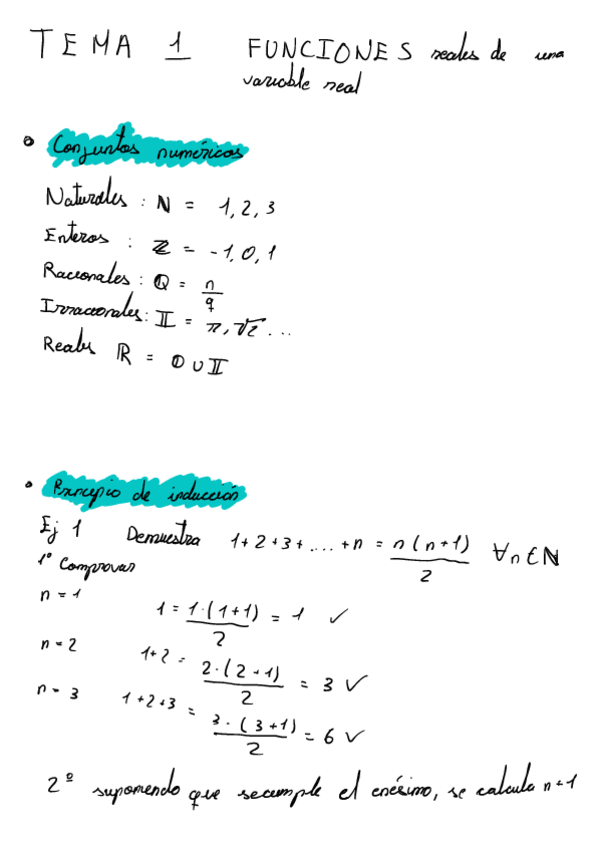 TEMA 1 FUNCIONES reales de una
variable real
Conjuntos numéricos
Naturales : ℕ = 1, 2, 3
Enteros : ℤ = -1, 0, 1
Racionales : ℚ = n/q
Irracionales : 𝕀 = π, √2 ...
Reales ℝ = ℚ ∪ 𝕀
Principio de inducción
Ej 1 Demuestra 1+2+3+....+n = n(n+1)/2 ∀n∈ℕ
1º Comprovar
n = 1 1 = 1·(1+1)/2 = 1 ✓
n = 2 1+2 = 2·(2+1)/2 = 3 ✓
n = 3 1+2+3 = 3·(3+1)/2 = 6 ✓
2º suponiendo que secumple el enésimo, se calcula n+1